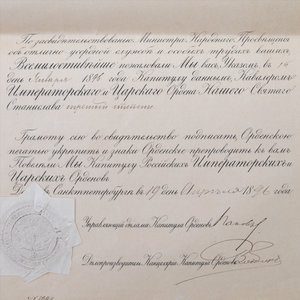 По засвидѣтельствованію Министра Народнаго Просвѣщенія
объ отлично усердной службѣ и особыхъ трудахъ вашихъ,
Всемилостивѣйше пожаловали Мы васъ Указомъ, въ
день Января 1896 Капитулу даннымъ, Кавалеромъ
Императорскаго и Царскаго Ордена Нашего Святаго
Станислава третьей степени
Грамоту сію во свидѣтельство подписать, Орденскою
печатью укрѣпить и знаки Орденскіе препроводить къ вамъ
Повелѣли Мы Капитулу Россійскихъ Императорскихъ и
Царскихъ Орденовъ.
Данъ въ Санктпетербургѣ въ 19 день 1896 года
Управляющій дѣлами Капитула Орденовъ
Дѣлопроизводитель Канцеляріи Капитула Орденовъ